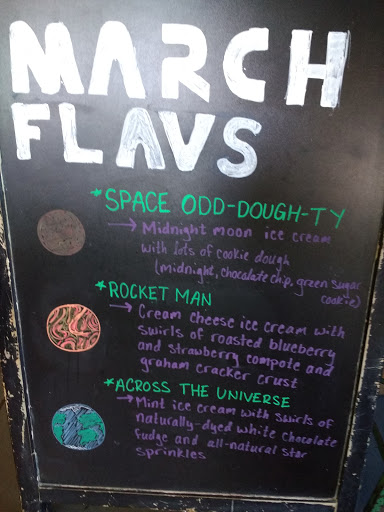 MARCH
FLAVS
*SPACE ODD-DOUGH-TY
→ Midnight moon ice cream
with lots of cookie dough
(midnight, chocolate chip, green sugar
cookie)
*ROCKET MAN
→ Cream cheese ice cream with
swirls of roasted blueberry
and strawberry compote and
graham cracker crust
*ACROSS THE UNIVERSE
→ Mint ice cream with swirls of
naturally-dyed white chocolate
fudge and all-natural star
sprinkles